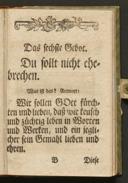 Das sechste Gebot.
Du sollt nicht ehe-
brechen.
Was ist das? Antwort:
Wir sollen GOtt fürch-
ten und lieben, daß wir keusch
und züchtig leben in Worten
und Werken, und ein jegli-
cher sein Gemahl lieben und
ehren.
B Diese